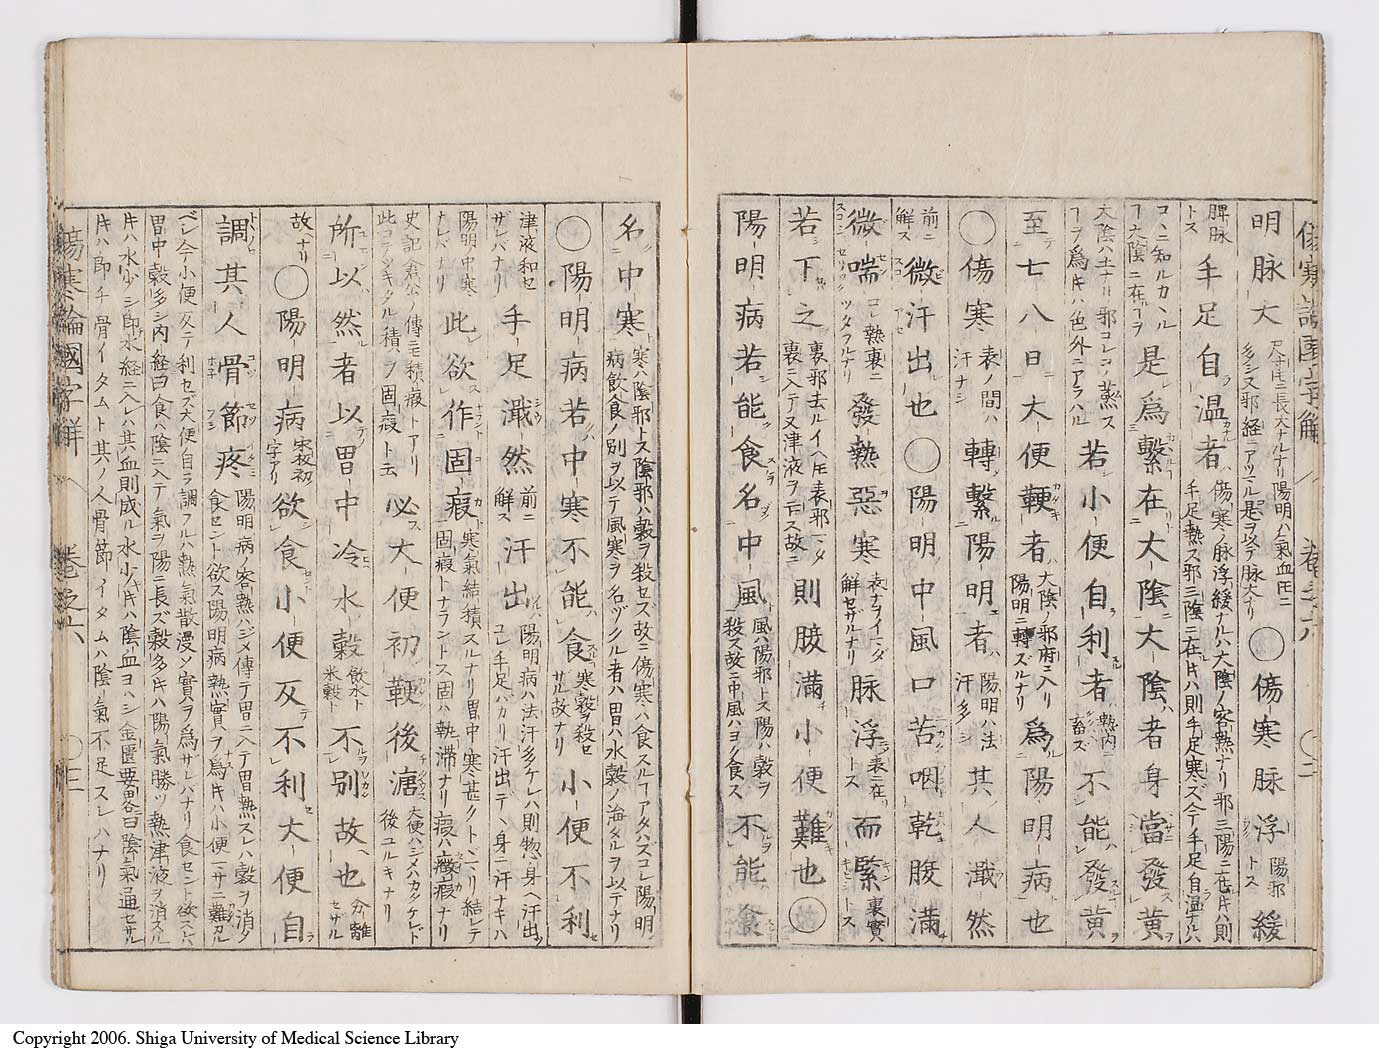 傷寒論國字解 卷之六 ○二
明脉大 尺寸ニ長大ナルナリ陽明ハ氣血圧ニ多シ又邪經ニアツマル是ヲ以テ脉大ナリ ○傷寒脉浮 陽邪トス 緩
脾脉トス 手足自温者 傷寒ノ脉浮緩ナルハ大陰ノ客熱ナリ邪三陽ニ在キハ則手足熱ス邪三陰ニ在キハ則手足寒ズ今手足自温ナルハ
コヽニ知ルカヽル大陰ニ在ヿヲ 是爲繫在大陰大陰者身當發黃
大陰ハ土ナリ邪コレヲ蒸スヿヲ爲キハ色外ニアラハル 若小便自利者 熱内ニ畜ズ 不能發黃
至七八日大便鞕者 大陰ノ邪府ニ入リ陽明ニ轉ズルナリ 爲陽明病也
○傷寒 表ノ間ハ汗ナシ 轉繫陽明者 陽明ハ法汗多シ 其人濈然
前ニ解ス 微汗出也○陽明中風口苦咽乾腹滿
微喘 コレ熱裏ニツタフルナリ 發熱惡寒 表ナヲイマダ解セザルナリ 脉浮 表ニ在トス 而緊 裏實トス
若下之 裏邪去ルイヘ𪜈表邪マタ裏ニ入テ又津液ヲ亡ス故ニ 則腹滿小便難也○
陽明病若能食名中風 風ハ陽邪トス陽ハ穀ヲ殺ス故ニ中風ハヨク食ス 不能食
名中寒 寒ハ陰邪トス陰邪ハ穀ヲ殺セズ故ニ傷寒ハ食スルヿアタハズコレ陽明病飲食ノ別ヲ以テ風寒ヲ名ヅクル者ハ胃ハ水穀ノ海タルヲ以テナリ
○陽明病若中寒不能食 寒穀ヲ殺セザル故ナリ 小便不利
津液和セザレバナリ 手足濈然 前ニ解ス 汗出 陽明病ハ法汗多ケレハ則惣身ヘ汗出ツコレ手足バカリ汗出テヽ身ニ汗ナキハ
陽明中寒ナレバナリ 此欲作固瘕 寒氣結積スルナリ胃中寒甚クトヾコリ結レテ固瘕トナラントス固ハ執滞ナリ瘕ハ癥瘕ナリ
史記倉公傳ニモ積瘕トアリ此コテツキタル積ハヲ固瘕ト云 必大便初鞕後溏 大便ハジメハカタケレド後ユルキナリ
所以然者以胃中冷水穀 飲水ト米穀ト 不別故也 分離セザル
故ナリ ○陽明病 宋板初字アリ 欲食小便反不利大便自
調其人骨節疼 陽明病ノ客熱ハジメ傳テ胃ニ入テ胃熱スレハ穀ヲ消ノ食セント欲ス陽明病熱實ヲ爲キハ小便マサニ難カル
ベシ今小便反テ利セズ大便自ラ調フルハ熱氣散漫ソ實ヲ爲ザレバナリ食セント欲スルハ
胃中穀多シ内経曰食ハ陰ニ入テ氣ヲ陽ニ長ズ穀多キハ陽氣勝ツ熱津液ヲ消スル
キハ水少シ即水経ニ入レハ其血則成ル水少キハ陰血ヨハシ金匱要畧曰陰氣通セザル
キハ即チ骨イタムト其ノ人骨節イタムハ陰氣不足スレハナリ
傷寒論國字解 卷之六 ○三
Copyright 2006. Shiga University of Medical Science Library